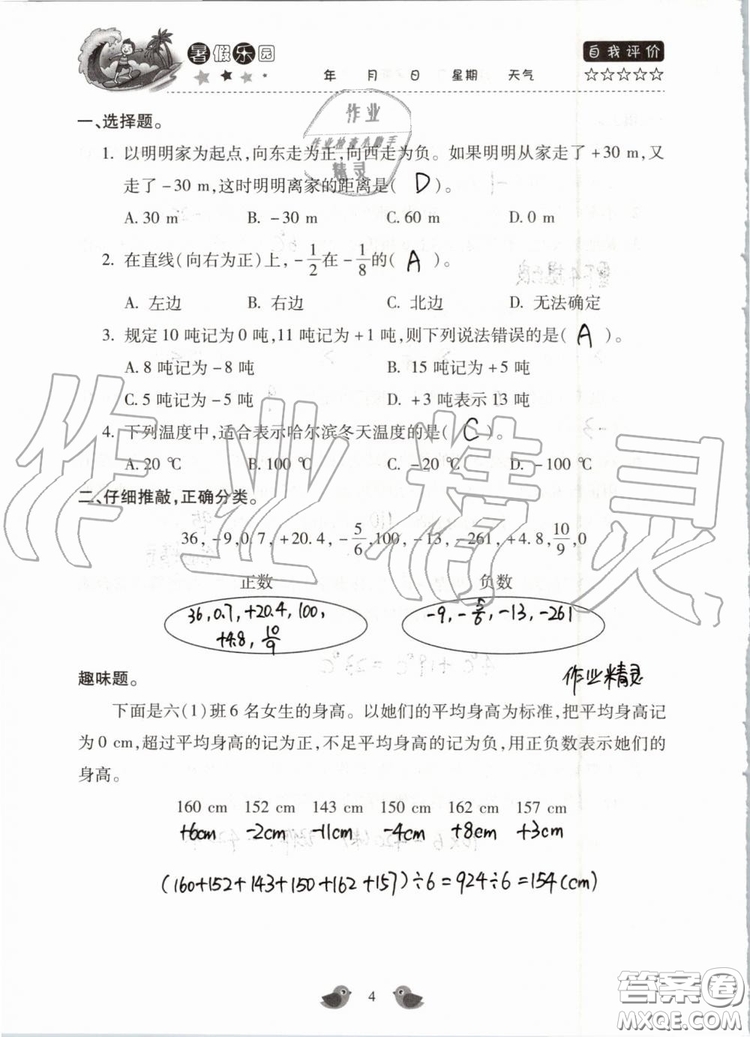 暑假乐园
年 月 日 星期 天气
自我评价
☆☆☆☆☆
作业
作业检查小助手
精灵
一、选择题。
1. 以明明家为起点,向东走为正,向西走为负。如果明明从家走了+30 m,又
走了-30 m,这时明明离家的距离是( D )。
A. 30 m B. -30 m C. 60 m D. 0 m
2. 在直线(向右为正)上,-1/2在-1/8的( A )。
A. 左边 B. 右边 C. 北边 D. 无法确定
3. 规定 10 吨记为 0 吨,11 吨记为+1 吨,则下列说法错误的是( A )。
A. 8 吨记为-8 吨 B. 15 吨记为+5 吨
C. 5 吨记为-5 吨 D. +3 吨表示 13 吨
4. 下列温度中,适合表示哈尔滨冬天温度的是( C )。
A. 20 ℃ B. 100 ℃ C. -20 ℃ D. -100 ℃
作业精灵
二、仔细推敲,正确分类。
36,-9,0.7,+20.4,-5/6,100,-13,-261,+4.8,10/9,0
正数 负数
36,0.7,+20.4,100,
+4.8,10/9
-9,-5/6,-13,-261
作业精灵
趣味题。
下面是六(1)班 6 名女生的身高。以她们的平均身高为标准,把平均身高记
为 0 cm,超过平均身高的记为正,不足平均身高的记为负,用正负数表示她们的
身高。
160 cm 152 cm 143 cm 150 cm 162 cm 157 cm
+6cm -2cm -11cm -4cm +8cm +3cm
(160+152+143+150+162+157)÷6=924÷6=154(cm)
4
答案圈
MXQE.COM